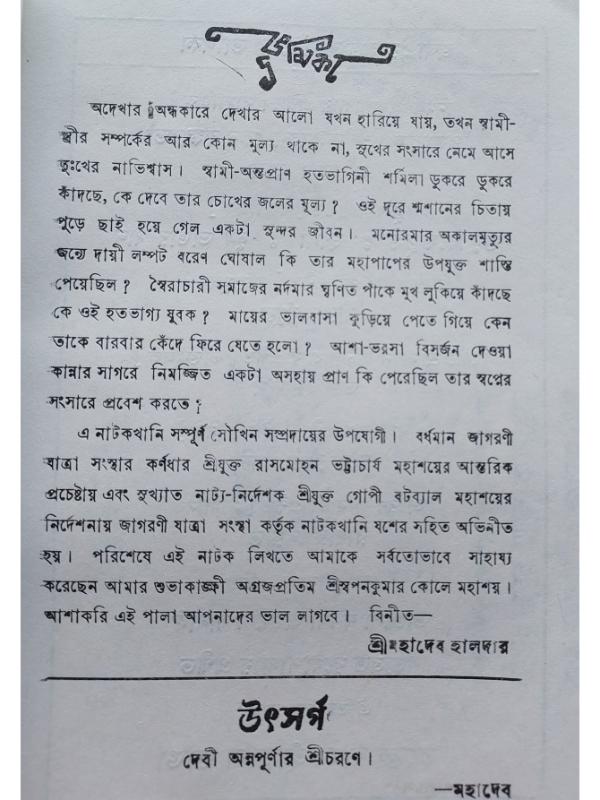 ভূমিকা
অদেখার অন্ধকারে দেখার আলো যখন হারিয়ে যায়, তখন স্বামী-
স্ত্রীর সম্পর্কের আর কোন মূল্য থাকে না, সুখের সংসারে নেমে আসে
দুঃখের নাভিশ্বাস। স্বামী-অন্তপ্রাণ হতভাগিনী শর্মিলা ডুকরে ডুকরে
কাঁদছে, কে দেবে তার চোখের জলের মূল্য? ওই দূরে শ্মশানের চিতায়
পুড়ে ছাই হয়ে গেল একটা সুন্দর জীবন। মনোরমার অকালমৃত্যুর
জন্যে দায়ী লম্পট বরেণ ঘোষাল কি তার মহাপাপের উপযুক্ত শাস্তি
পেয়েছিল? স্বৈরাচারী সমাজের নর্দমার ঘৃণিত পাঁকে মুখ লুকিয়ে কাঁদছে
কে ওই হতভাগ্য যুবক? মায়ের ভালবাসা কুড়িয়ে পেতে গিয়ে কেন
তাকে বারবার কেঁদে ফিরে যেতে হলো? আশা-ভরসা বিসর্জন দেওয়া
কান্নার সাগরে নিমজ্জিত একটা অসহায় প্রাণ কি পেরেছিল তার স্বপ্নের
সংসারে প্রবেশ করতে?
এ নাটকখানি সম্পূর্ণ সৌখিন সম্প্রদায়ের উপযোগী। বর্ধমান জাগরণী
যাত্রা সংস্থার কর্ণধার শ্রীযুক্ত রাসমোহন ভট্টাচার্য মহাশয়ের আন্তরিক
প্রচেষ্টায় এবং সুখ্যাত নাট্য-নির্দেশক শ্রীযুক্ত গোপী বটব্যাল মহাশয়ের
নির্দেশনায় জাগরণী যাত্রা সংস্থা কর্তৃক নাটকখানি যশের সহিত অভিনীত
হয়। পরিশেষে এই নাটক লিখতে আমাকে সর্বতোভাবে সাহায্য
করেছেন আমার শুভাকাঙ্ক্ষী অগ্রজপ্রতিম শ্রীস্বপনকুমার কোলে মহাশয়।
আশাকরি এই পালা আপনাদের ভাল লাগবে। বিনীত—
শ্রীমহাদেব হালদার
উৎসর্গ
দেবী অন্নপূর্ণার শ্রীচরণে।
—মহাদেব